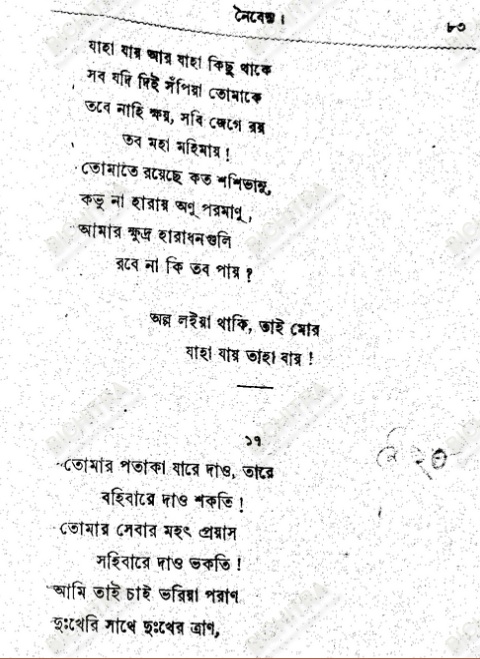 নৈবেদ্য।
৮৩
যাহা যায় আর যাহা কিছু থাকে
সব যদি দিই সঁপিয়া তোমাকে
তবে নাহি ক্ষয়, সবি জেগে রয়
তব মহা মহিমায়!
তোমাতে রয়েছে কত শশিভানু,
কভু না হারায় অণু পরমাণু,
আমার ক্ষুদ্র হারাধনগুলি
রবে না কি তব পায়?
অল্প লইয়া থাকি, তাই মোর
যাহা যায় তাহা যায়!
১৭
তোমার পতাকা যারে দাও, তারে
বহিবারে দাও শকতি!
তোমার সেবার মহৎ প্রয়াস
সহিবারে দাও ভকতি!
আমি তাই চাই ভরিয়া পরাণ
দুঃখেরি সাথে দুঃখের ত্রাণ,